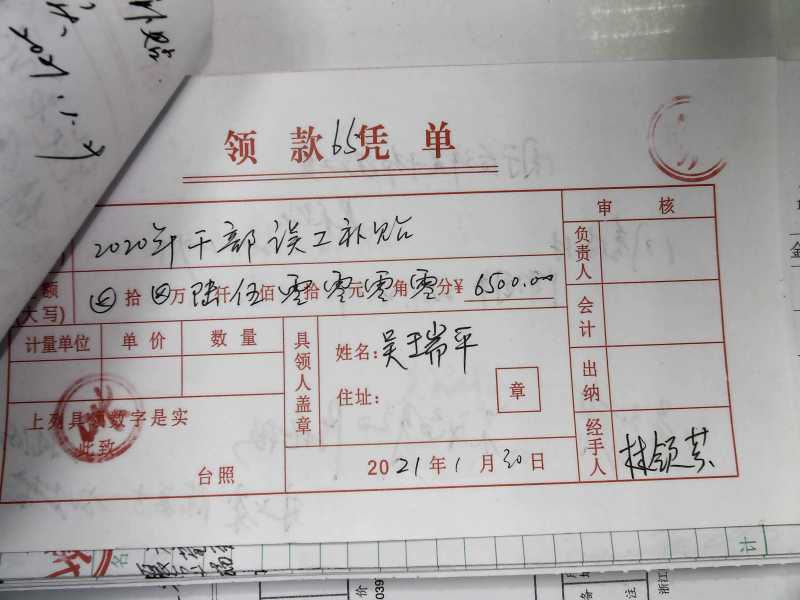 补贴
2021.1.
领款65凭单
审 核
2020年干部误工补贴
负责人
额
(大写)
⊗拾⊗万陆仟伍佰零拾零元零角零分¥ 6500.00
会计
计量单位 单价 数量
具领人盖章
姓名:吴瑞平
住址:
章
出纳
上列具领数字是实
此致
台照
2021年1月30日
经手人
计
名
039
备
注
浙江
金